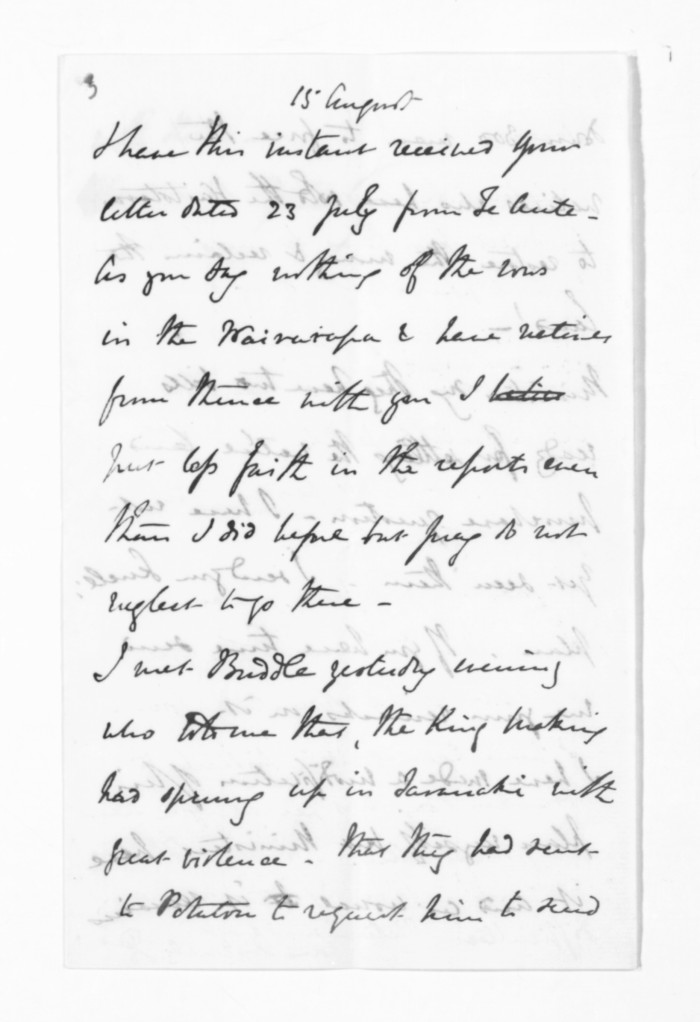 3
15 August
I have this instant received your
letter dated 23 July from Te Aute -
As you say nothing of the rows
in the Wairarapa & have natives
from thence with you I believe
put less faith in the reports even
than I did before but pray do not
neglect to go there -
I met Buddle yesterday evening
who told me that, the King making
had sprung up in Taranaki with
great violence - that they had sent
to Potatau to request him to send